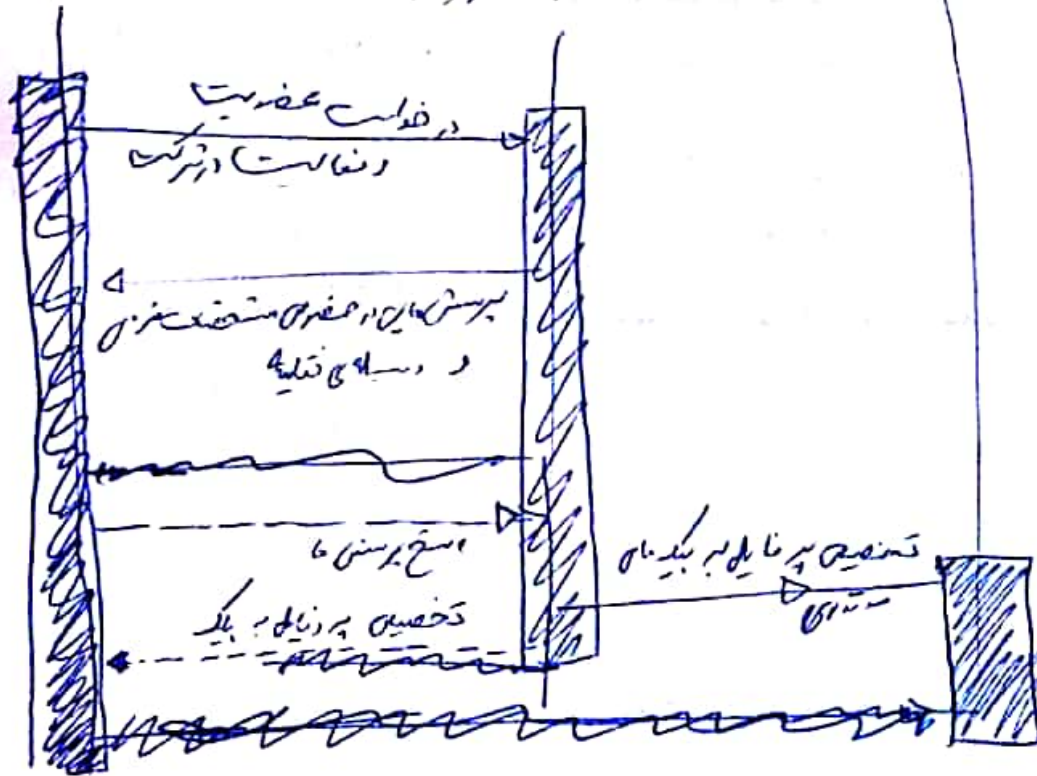 درخواست عضویت
و فعالیت در شرکت
پرسش هایی در خصوص مشخصات فردی
و وسیله ی نقلیه
پاسخ پرسش ها
تخصیص پروفایل به پیک
تخصیص پروفایل به پیک های